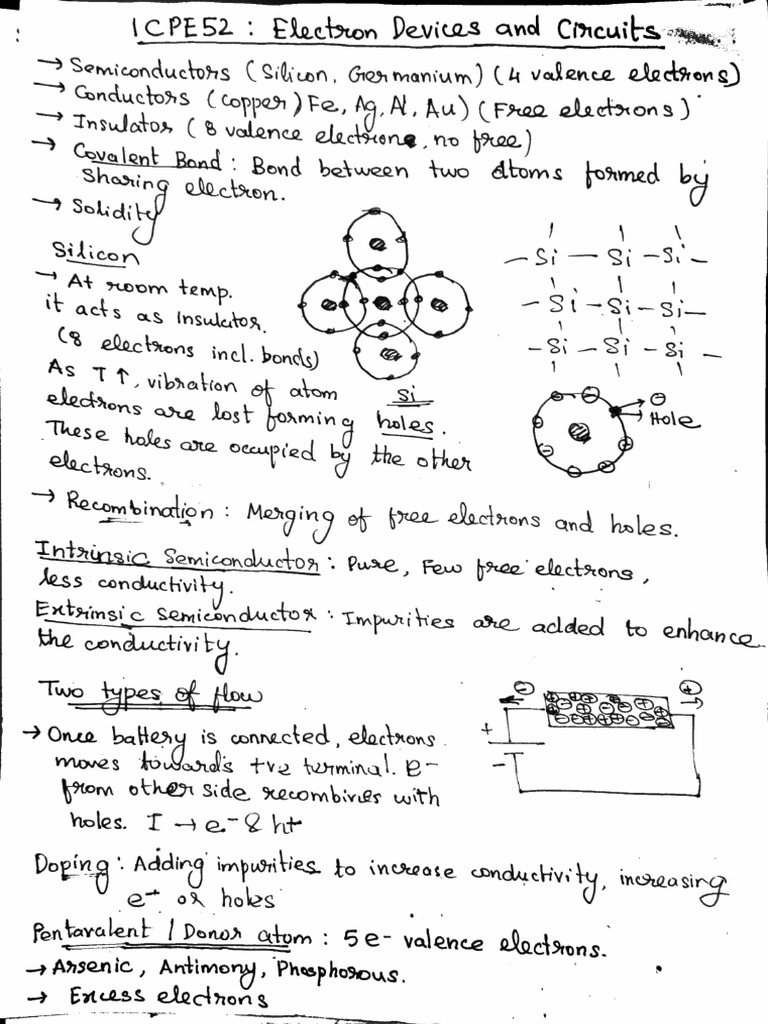 ICPE52 : Electron Devices and Circuits
→ Semiconductors (Silicon, Germanium) (4 valence electrons)
→ Conductors (copper) Fe, Ag, Al, Au) (Free electrons)
→ Insulator (8 valence electrone, no free)
→ Covalent Bond : Bond between two atoms formed by
sharing electron.
→ Solidity
Silicon
→ At room temp.
it acts as insulator.
(8 electrons incl. bonds)
As T↑, vibration of atom
electrons are lost forming holes.
These holes are occupied by the other
electrons.
Si
- Si - Si - Si -
- Si - Si - Si -
- Si - Si - Si -
⊖
Hole
→ Recombination : Merging of free electrons and holes.
Intrinsic Semiconductor : Pure, Few free electrons,
less conductivity.
Extrinsic Semiconductor : Impurities are added to enhance
the conductivity.
Two types of flow
→ Once battery is connected, electrons
moves towards +ve terminal. e-
from other side recombines with
holes. I → e- & h+
⊖ ⊕
+
-
Doping : Adding impurities to increase conductivity, increasing
e+ or holes
Pentavalent / Donor atom : 5 e- valence electrons.
→ Arsenic, Antimony, Phosphorous.
→ Excess electrons